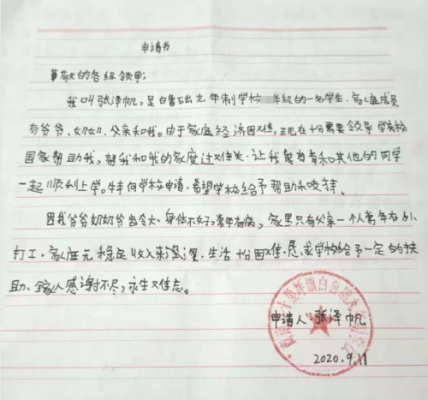 申请书
尊敬的各级领导:
我叫张泽帆,是白鲁础九年制学校 年级的一名学生,家庭成员
有爷爷,奶奶,父亲和我。由于家庭经济困难,现在十分需要领导 学校
国家帮助我,帮我和我的家庭过难关,让我能有和其他的同学
一起顺利上学。特向学校申请,希望学校给予帮助和支持。
因我爷爷奶奶年龄大,身体不好,常年有病,家里只有父亲一个人常年在外
打工,家庭无稳定收入来源,生活十分困难,恳求学校给予一定的扶
助、家人感谢不尽,永生难忘。
申请人:张泽帆
2020.9.11